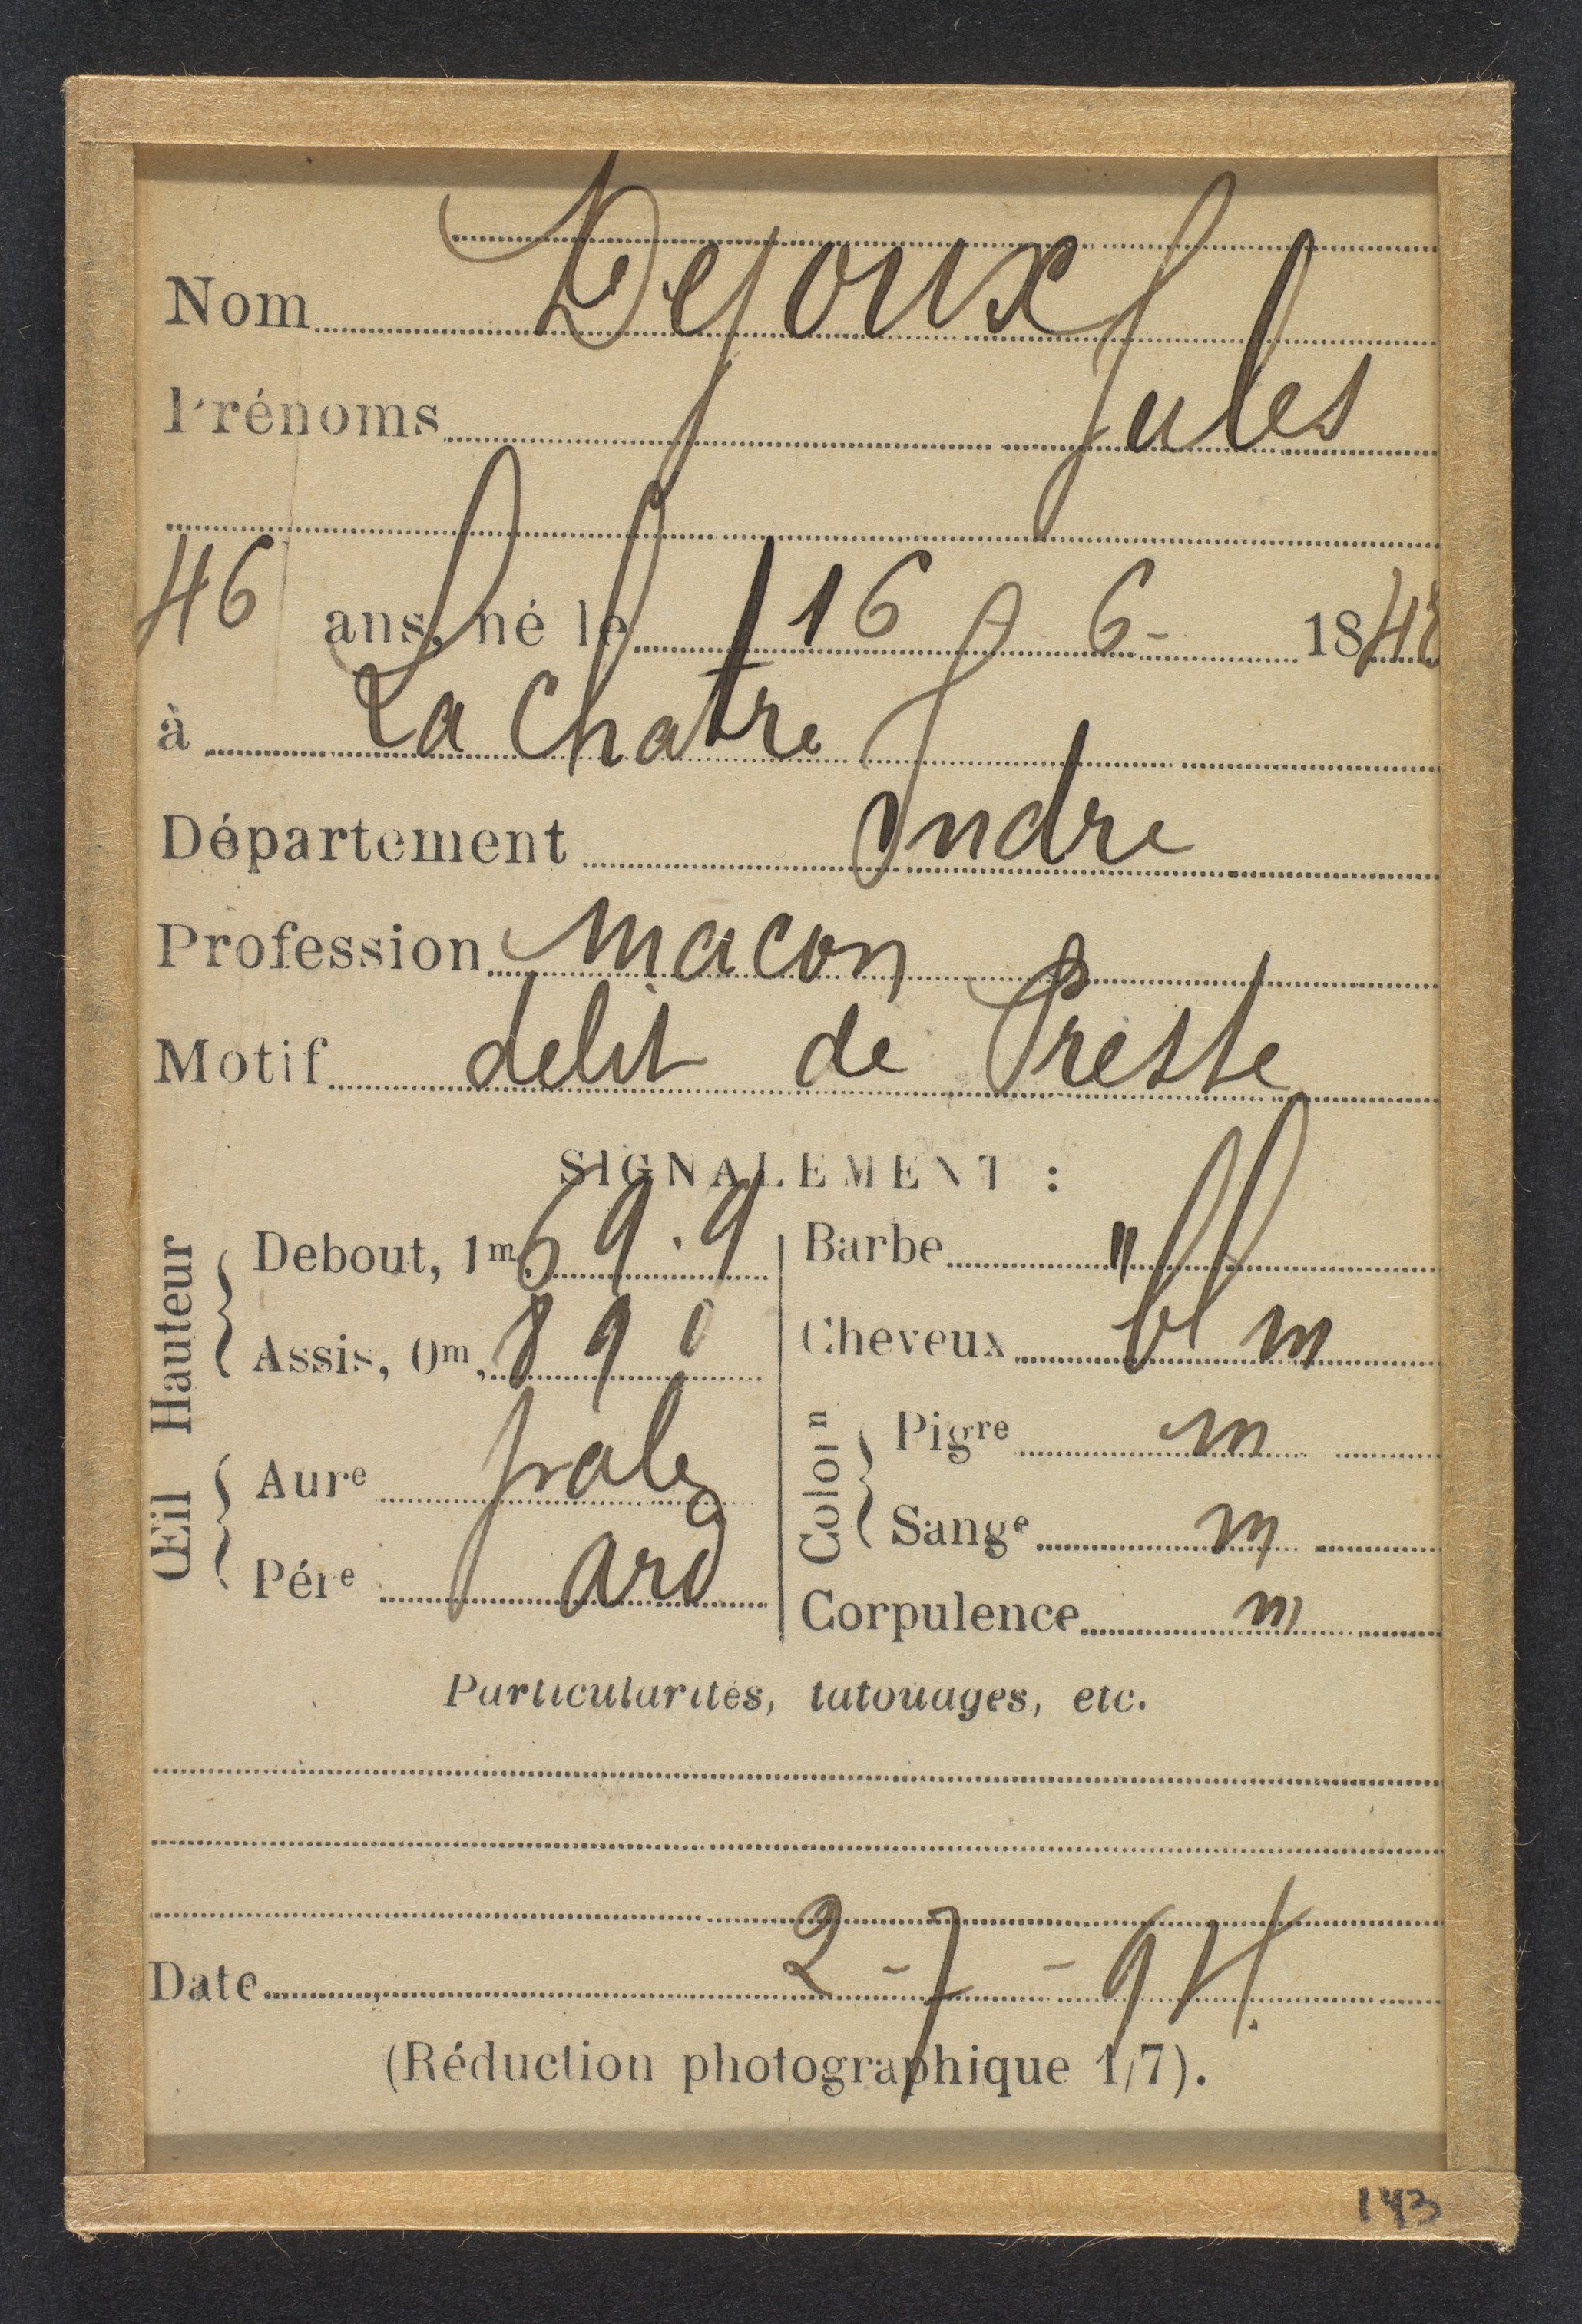 Nom Dejoux
Prénoms Jules
46 ans, né le 16 6- 1848
à La Chatre
Département Indre
Profession macon
Motif delit de Presse
SIGNALEMENT :
Hauteur
Debout, 1m, 69.9
Assis, 0m, 890
Œil
Aure
Pére
Barbe "
Cheveux bl m
Colorn
Pigre m
Sange m
Corpulence m
Particularités, tatouages, etc.
Date 2-7-94.
(Réduction photographique 1/7).
143